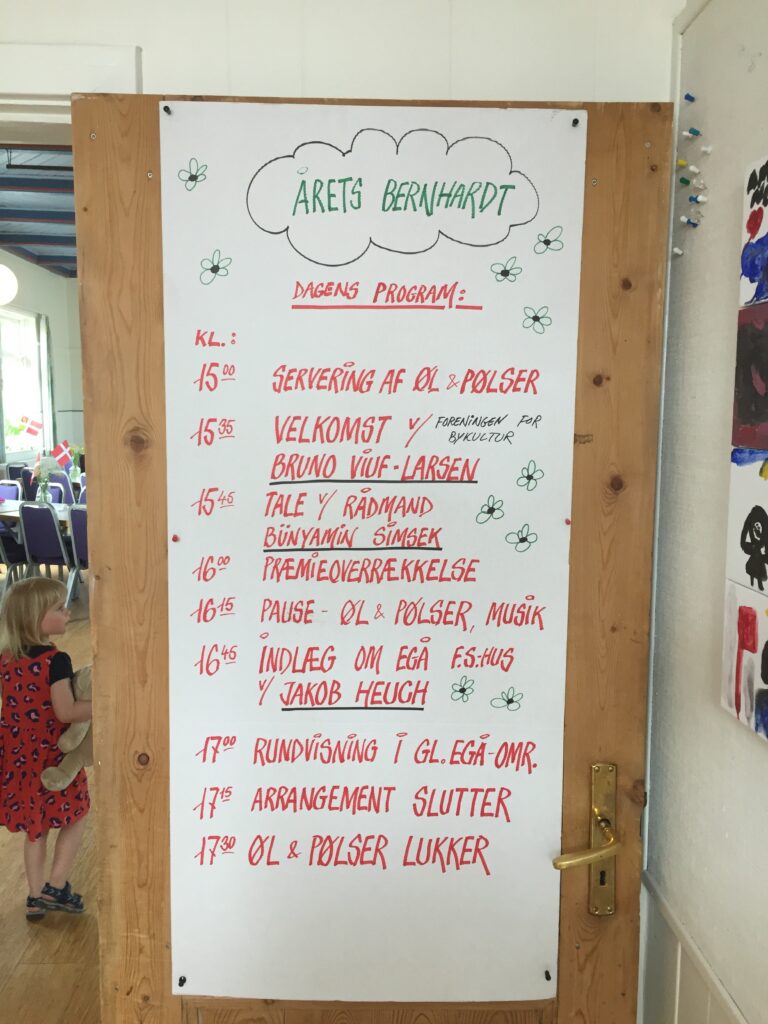 ÅRETS BERNHARDT
DAGENS PROGRAM:
KL.:
15 00 SERVERING AF ØL & PØLSER
15 35 VELKOMST V/ FORENINGEN FOR
BYKULTUR
BRUNO VIUF-LARSEN
15 45 TALE V/ RÅDMAND
BÜNYAMIN SIMSEK
16 00 PRÆMIEOVERRÆKKELSE
16 15 PAUSE - ØL & PØLSER, MUSIK
16 45 INDLÆG OM EGÅ F.S:HUS
V/ JAKOB HEUCH
17 00 RUNDVISNING I GL. EGÅ-OMR.
17 15 ARRANGEMENT SLUTTER
17 30 ØL & PØLSER LUKKER